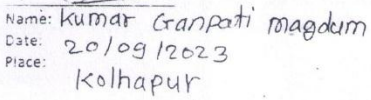 Name: Kumar Ganpati magdum
Date: 20/09/2023
Place:
Kolhapur